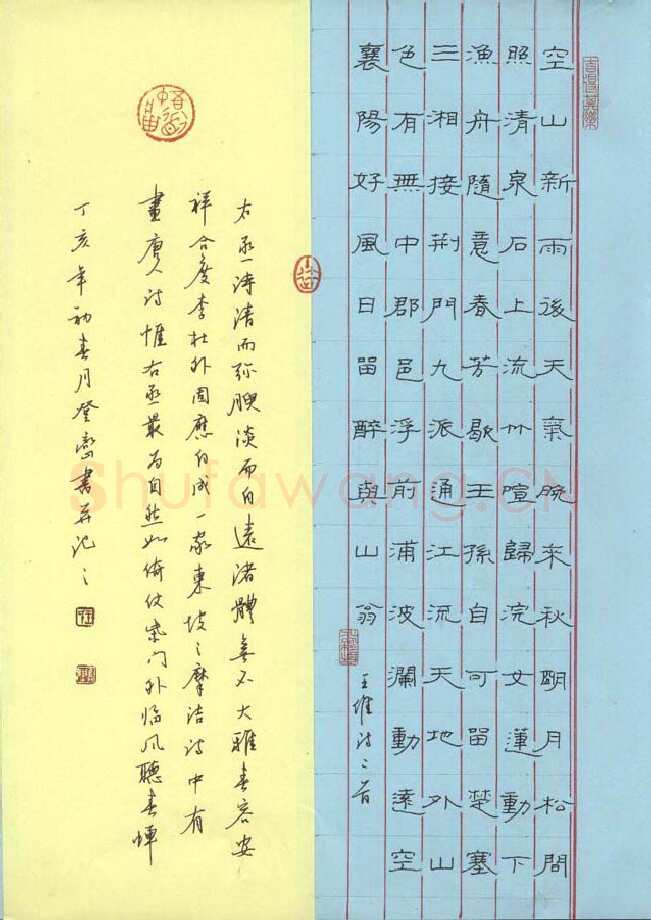 空山新雨後天氣晚來秋明月松間
照清泉石上流竹喧歸浣女蓮動下
漁舟隨意春芳歇王孫自可留楚塞
三湘接荊門九派通江流天地外山
色有無中郡邑浮前浦波瀾動遠空
襄陽好風日留醉與山翁
王維诗二首
右丞诗清而弥腴淡而自遠诸體無不大雅春容安
祥合度李杜外固應自成一家東坡云摩诘诗中有
畫唐人诗惟右丞最為自然如倚仗柴门外临风聽暮蝉
丁亥年初春月登書并记之
Shufawang.CN